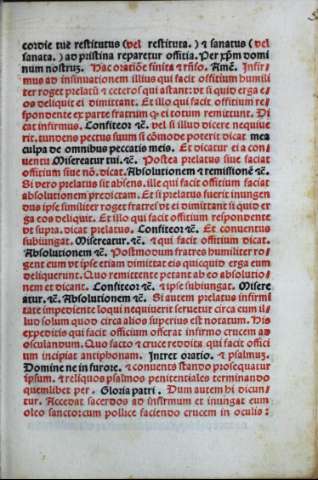 cordie tuẽ restitutus (vel restituta.) ⁊ sanatus (vel
sanata.) ad pristina reparetur offitia. Per xp̃m domi
num nostruȝ. Hac oratiõe finita ⁊ rñso. Amẽ. Infir
mus ad insinuationem illius qui facit offitium humili
ter roget prelatũ ⁊ ceteros qui astant: vt si quid erga e
os deliquit ei dimittant. Et illo qui facit offitium re
spondente ex parte fratrum ꝙ ei totum remittunt. Di
cat infirmus. Confiteor ⁊c̃. vel si illud dicere nequiue
rit. tundens pectus suum si cõmode poterit dicat. mea
culpa de omnibus peccatis meis. Et dicatur ei a con
uentu Misereatur tui. ⁊c̃. Postea prelatus siue faciat
offitium siue nõ. dicat. Absolutionem ⁊ remissionẽ ⁊c̃.
Si vero prelatus sit absens. ille qui facit offitium faciat
absolutionem predictam. Et si prelatus fuerit inungen
dus ipse similiter roget fratres vt ei dimittant si quid er
ga eos deliquit. Et illo qui facit offitium respondente
vt supra. dicat prelatus. Confiteor ⁊c̃. Et conuentus
subiungat. Misereatur. ⁊c̃. ⁊ qui facit offitium dicat.
Absolutionem ⁊c̃. Postmodum fratres humiliter ro
gent eum vt ipse etiam dimittat eis quicquid erga eum
deliquerunt. Quo remittente petant ab eo absolutio
nem et dicant. Confiteor ⁊c̃. ⁊ ipse subiungat. Misere
atur. ⁊c̃. Absolutionem ⁊c̃. Si autem prelatus infirmi
tate impediente loqui nequiuerit seruetur circa eum il
lud solum quod circa alios superius est notatum. His
expeditis qui facit officium offerat infirmo crucem ad
osculandum. Quo facto ⁊ cruce reddita qui facit offici
um incipiat antiphonam. Intret oratio. ⁊ psalmuȝ.
Domine ne in furore. ⁊ conuentus stando prosequatur
ipsum. ⁊ reliquos psalmos penitentiales terminando
quemlibet per. Gloria patri. Dum autem hi dicun
tur. Accedat sacerdos ad infirmum et inungat eum
oleo sanctorum pollice faciendo crucem in oculis: